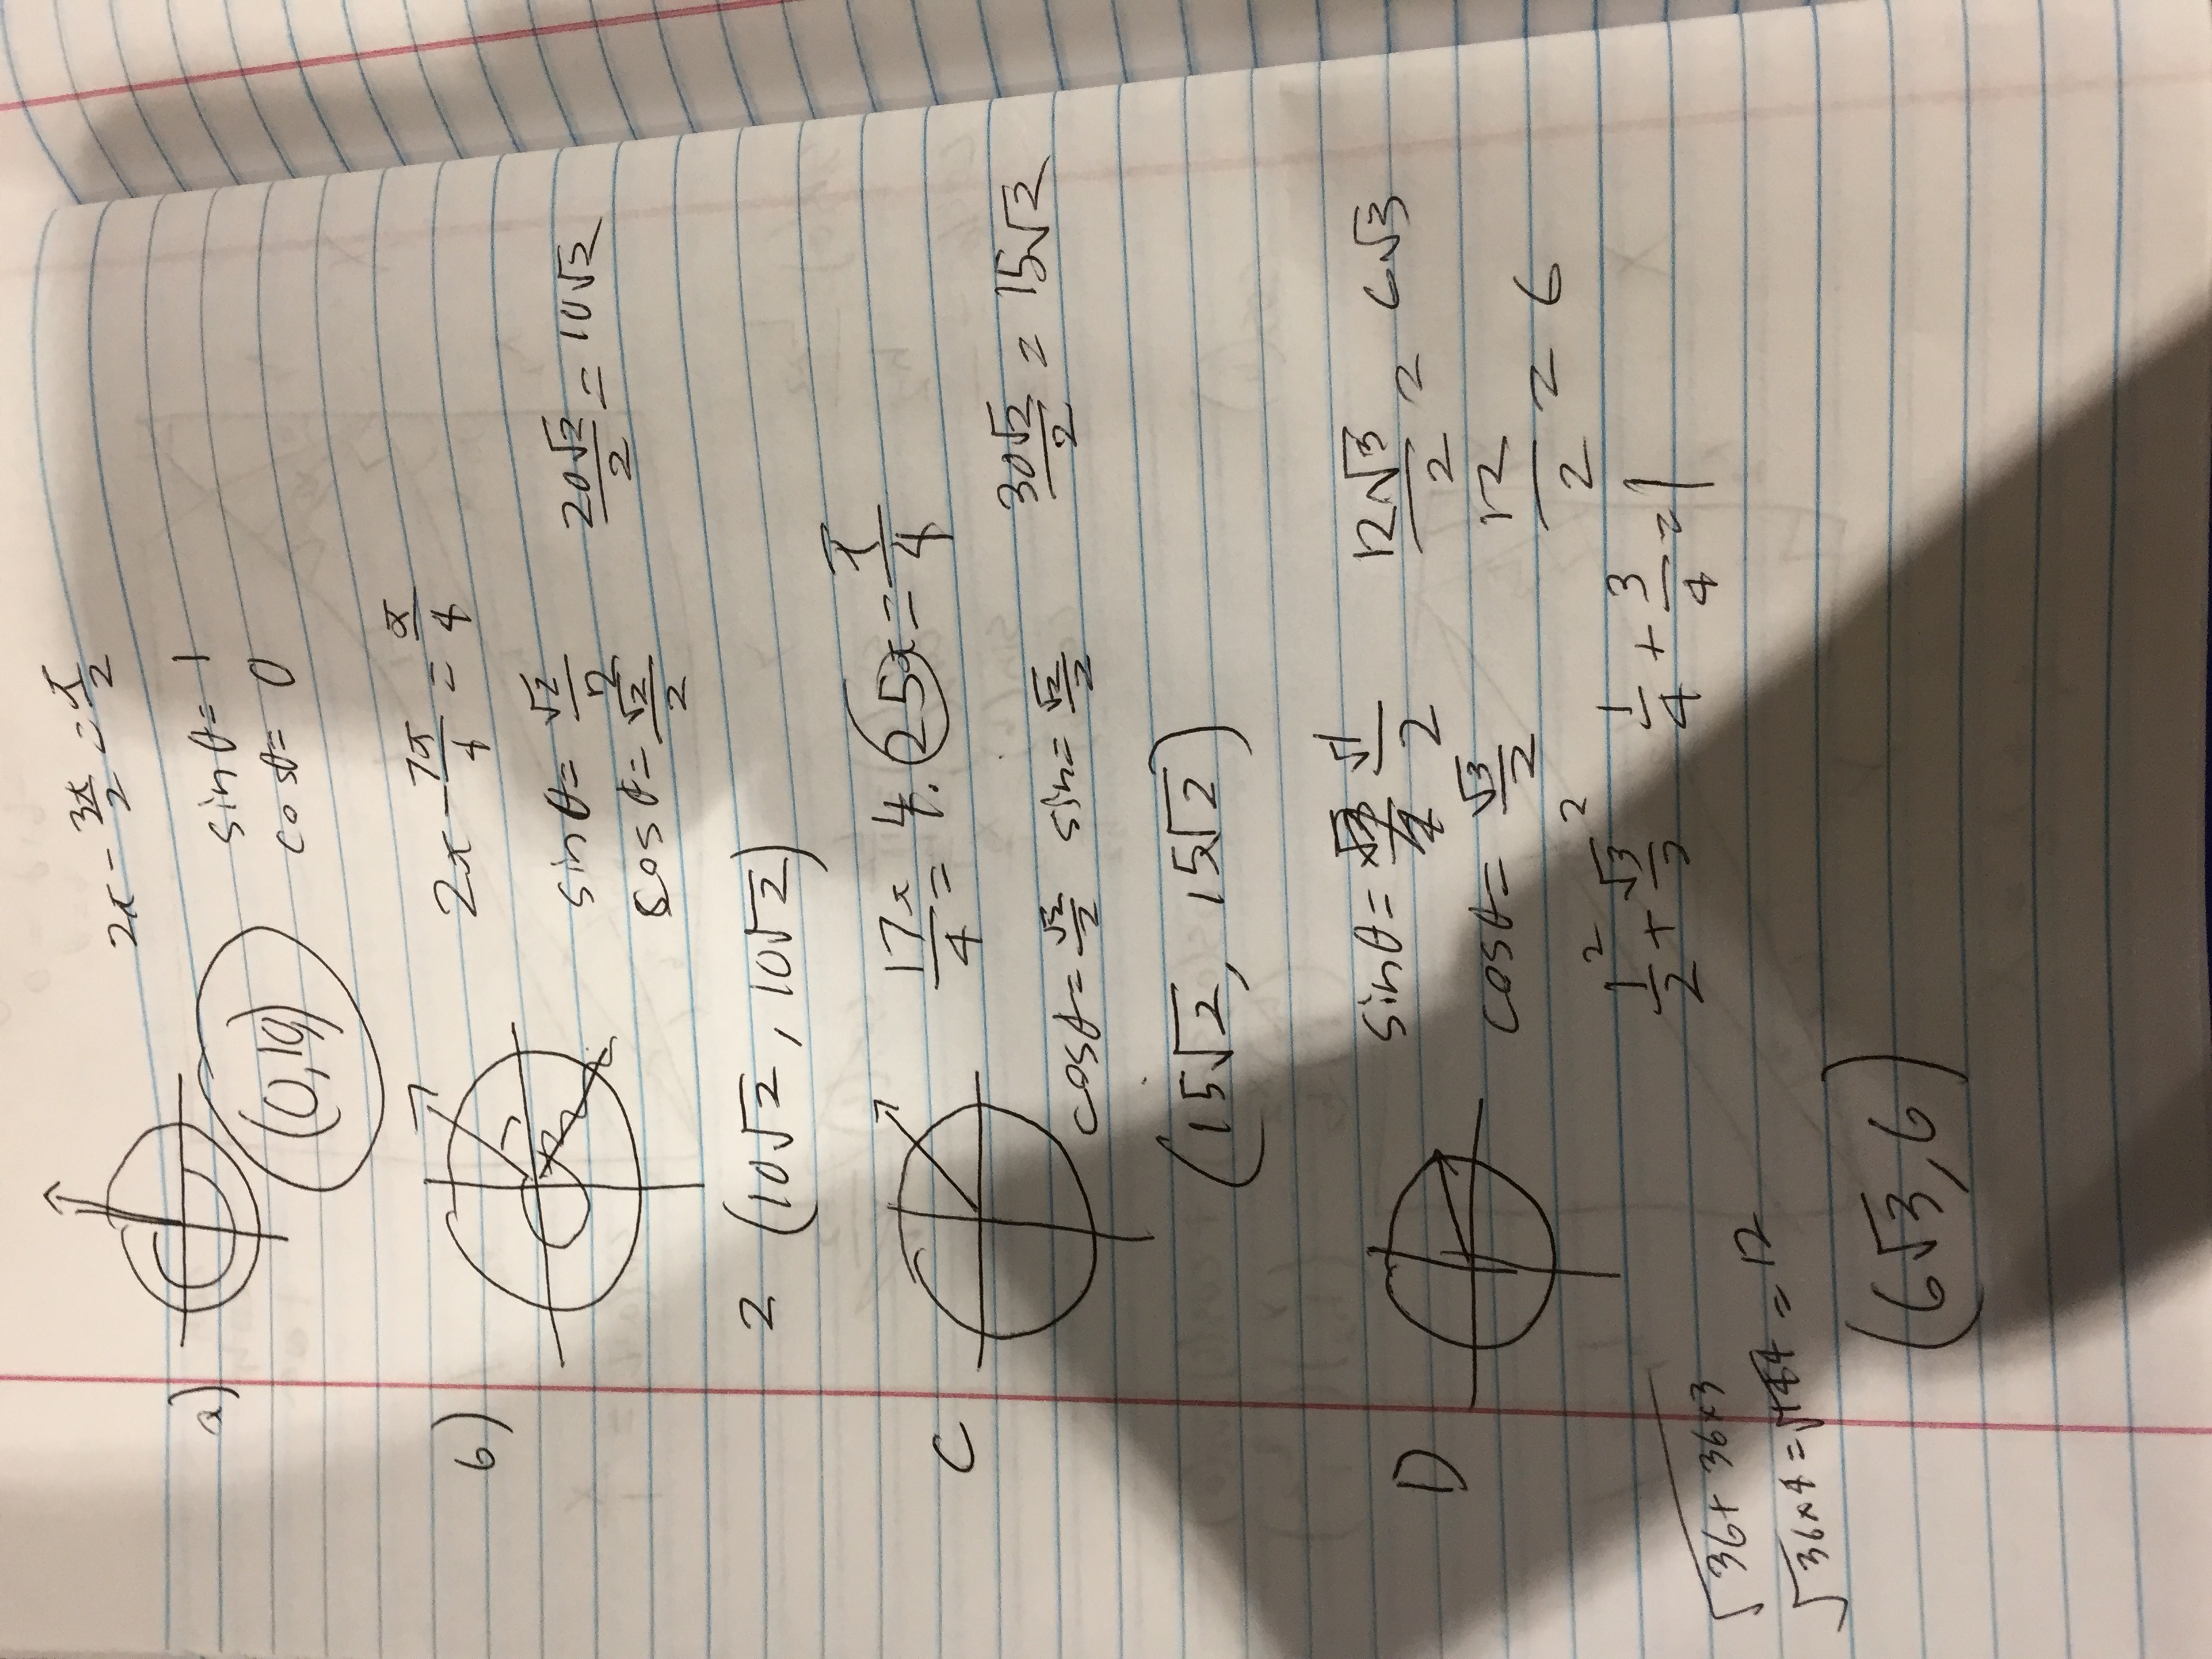 a)
2π - 3π/2 = π/2
sinθ = 1
cosθ = 0
(0,10)
b)
2π - 7π/4 = π/4
sinθ = √2/2
cosθ = √2/2
20√2/2 = 10√2
2 (10√2, 10√2)
C
17π/4 = 4.25π = π/4
cosθ = √2/2 sin = √2/2
30√2/2 = 15√2
(15√2, 15√2)
D
sinθ = √1/2
12√3/2 = 6√3
cosθ = √3/2
12/2 = 6
1/2² + √3/2² 1/4 + 3/4 = 1
√36+36×3
√36×4 = √144 = 12
(6√3, 6)